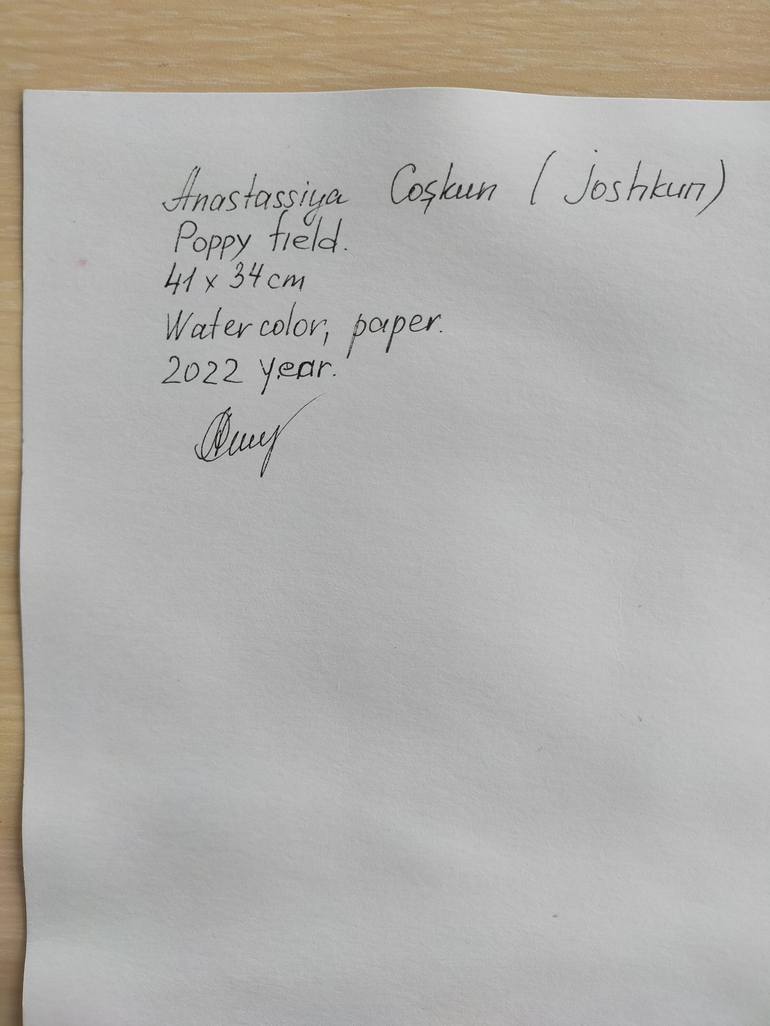 Anastassiya Coşkun (Joshkun)
Poppy field.
41 x 34 cm
Watercolor, paper.
2022 year.